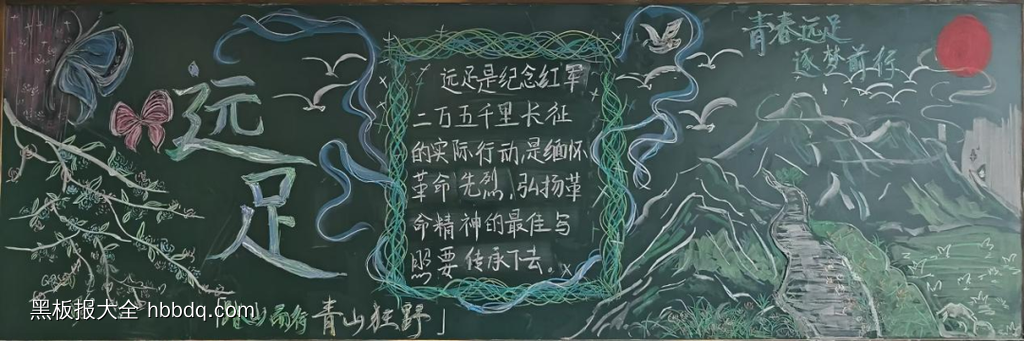 远足
远足是纪念红军
二万五千里长征
的实际行动,是缅怀
革命先烈,弘扬革
命精神的最佳与
照要传承下去。
青春远足
逐梦前行
而有青山狂野」
黑板报大全 hbbdq.com